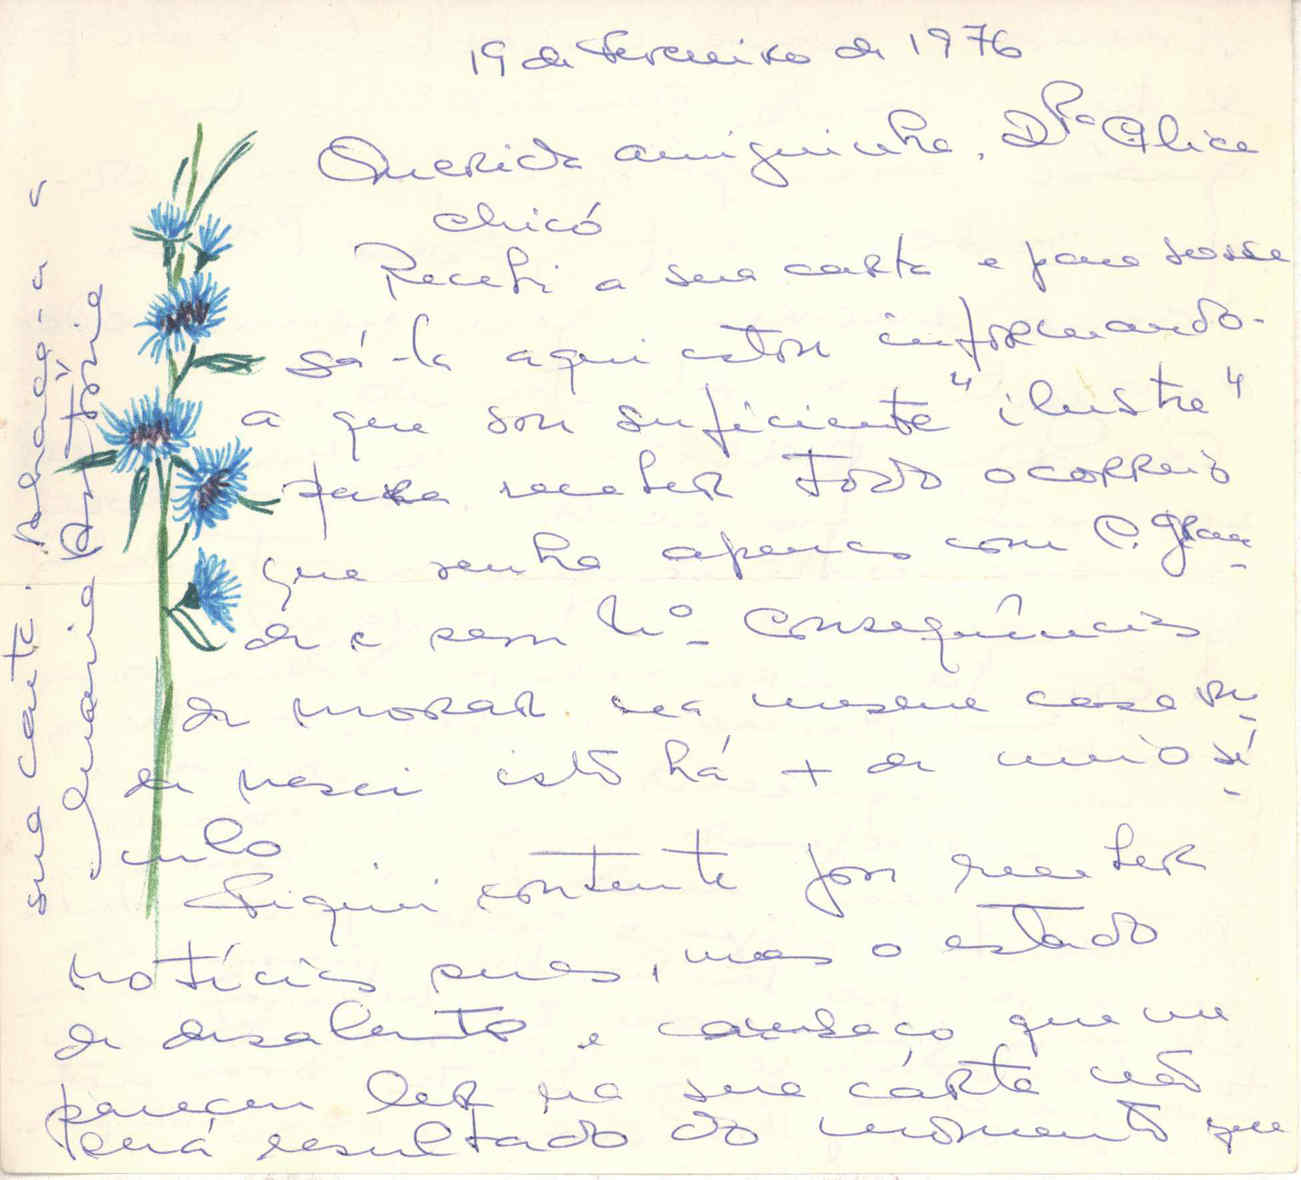 19 de Fevereiro de 1976
Querida amiguinha, Drª Alice
Chicó
Recebi a sua carta e para sosse
gá-la aqui estou informando-
a que sou suficiente "ilustre"
para receber todo o correio
que venha apenas com C. Gran-
de e sem nº Consequências
de morar na mesma casa on-
de nasci isto há + de meio sé-
culo
Fiquei contente por receber
notícias suas, mas o estado
de desalento e cansaço que me
pareceu ler na sua carta não
será resultado do momento que
sua carta. Abraça-a a
Maria Antónia